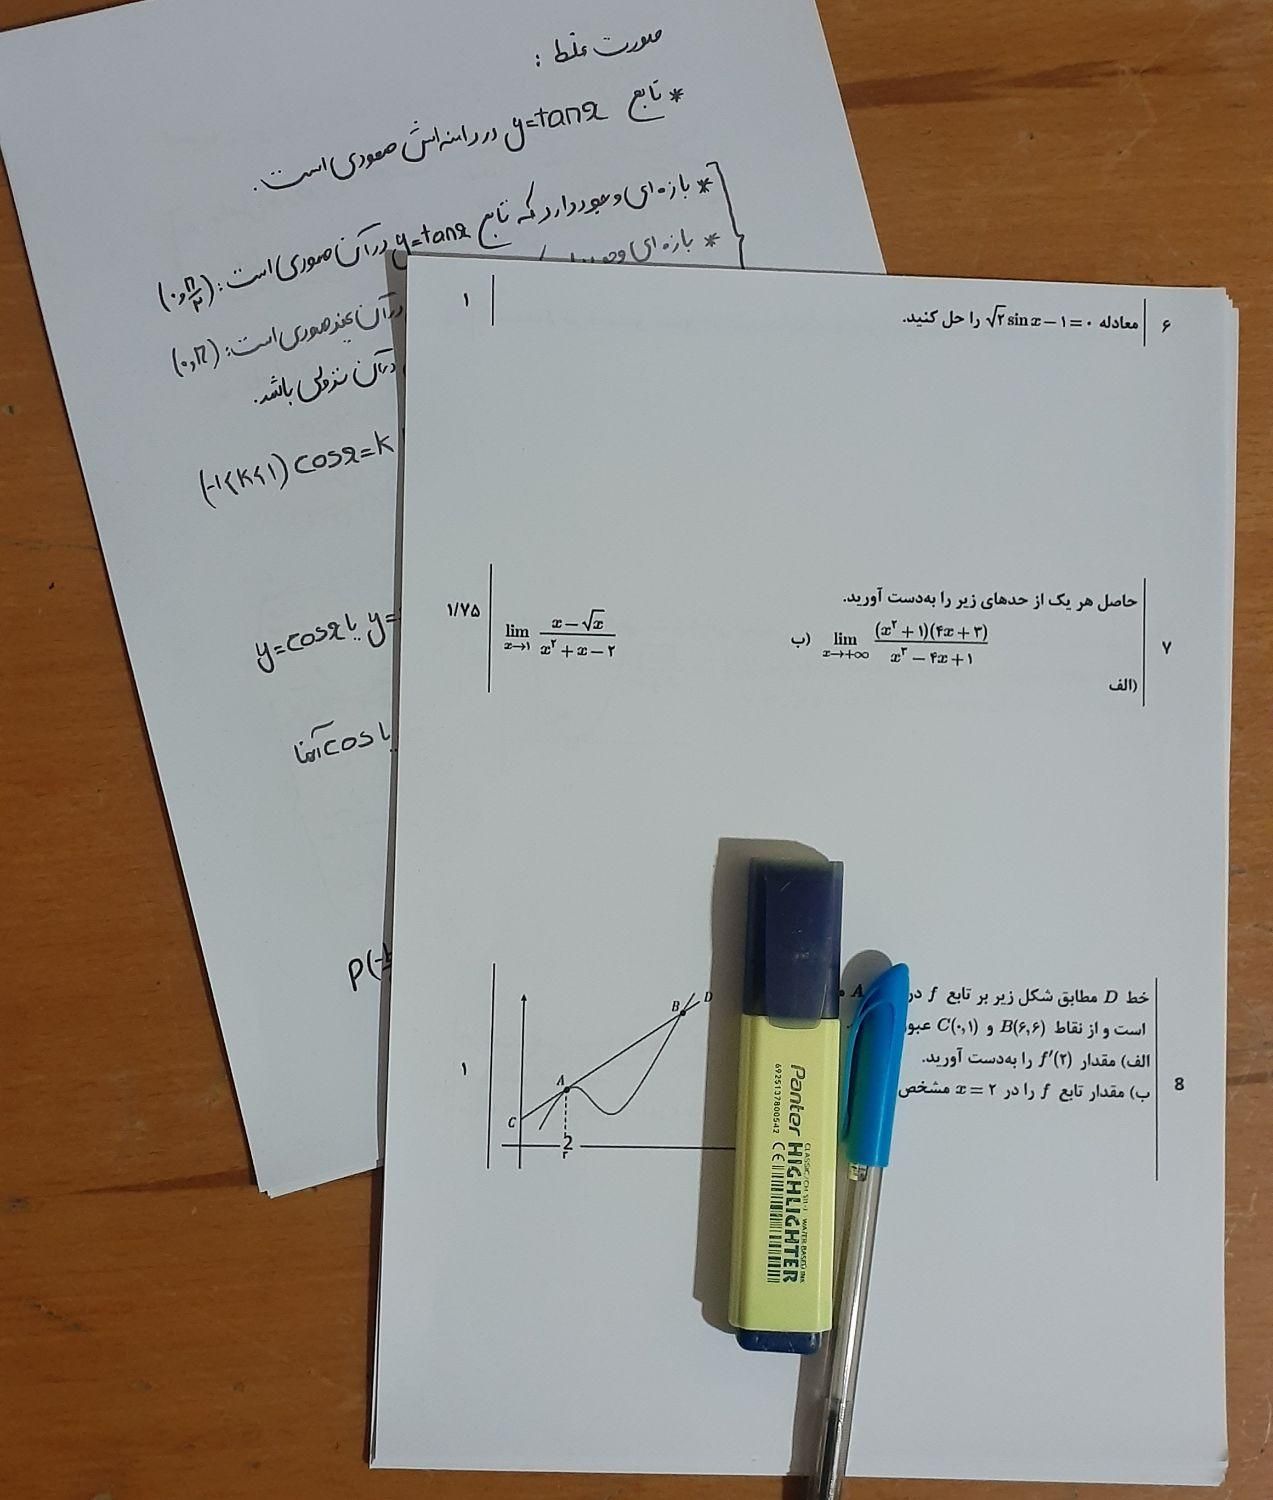 صورت غلط :
* تابع y=tanx در دامنه‌اش صعودی است.
* بازه‌ای وجود دارد که تابع y=tanx در آن صعودی است: (۰,π/۲)
* بازه‌ای
در آن غیرصعودی است: (۰,π)
در آن نزولی باشد.
(-۱<k<۱) cosx=k
y=cosx یا y=
یا cos آنها
P(
۶ معادله √۲ sin x − ۱ = ۰ را حل کنید. ۱
۷ حاصل هر یک از حدهای زیر را به‌دست آورید. ۱/۷۵
ب) lim x→+∞ (x²+۱)(۴x+۳) / x³−۴x+۱
lim x→۱ x−√x / x²+x−۲
الف)
8 خط D مطابق شکل زیر بر تابع f در A
است و از نقاط B(۶,۶) و C(۰,۱) عبور
الف) مقدار f′(۲) را به‌دست آورید.
ب) مقدار تابع f را در x=۲ مشخص
۱
B D
A
C
2
Panter HIGHLIGHTER
CLASSIC/CH SH-J WATER-BASED INK
6925137800542 CE